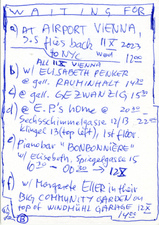 WAITING FOR
a) AT AIRPORT VIENNA,
J.S flies back 11 X 2023
to NYC went 1100
All 11 X VIENNA
b) W/ ELISABETH PENKER
@ gall. RAUMINHALT 1420
c) @ gall. GEZWANZIG 1500
d) @ E.P.'s home @ 2000
Sechsschimmelgasse 12/13 2200
klingel 13 (top left), 1st floor.
e) Pianobar "BONBONNIERE"
w/ elisabeth. Spiegelgasse 15
12 X
f) w/ Margrete Eller in their
BIG COMMUNITY GARDEN on
top of WINDMÜHL GARAGE 12 X
1400